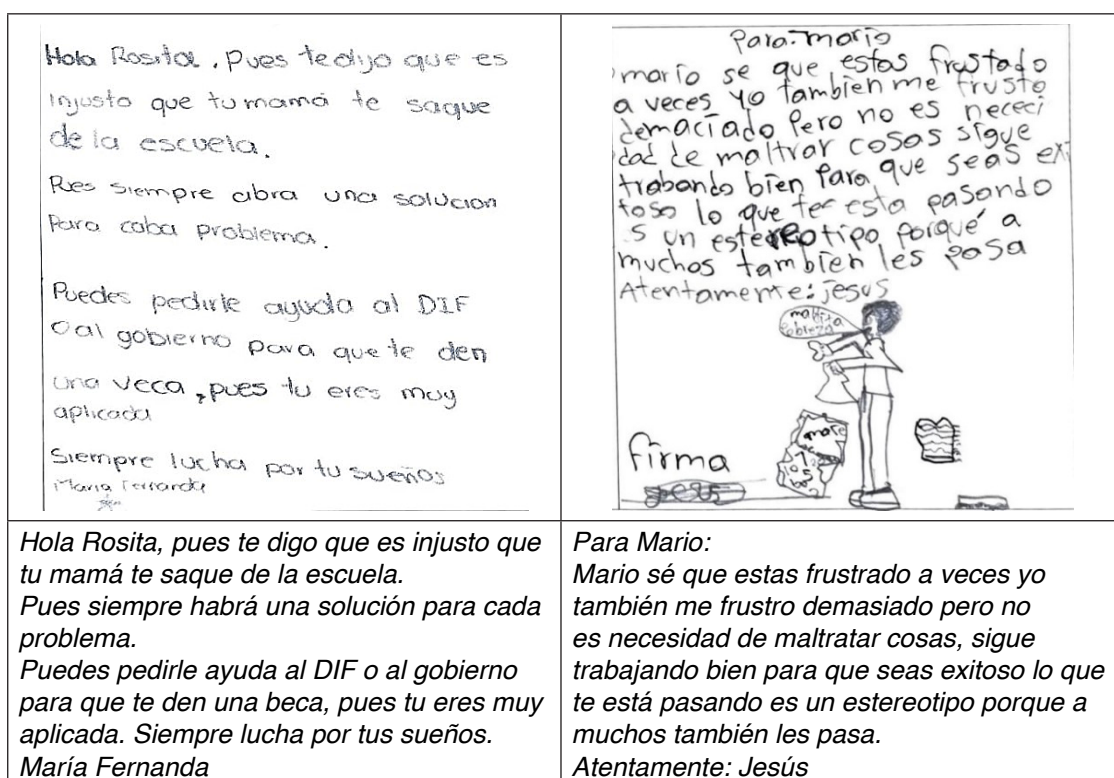 Hola Rosita, pues te dijo que es
injusto que tu mamá te saque
de la escuela.
Pues siempre abra una solucion
Para caba problema.
Puedes pedirle ayuda al DIF
o al gobierno para que te den
una veca, pues tu eres muy
aplicada
Siempre lucha por tu sueños
Maria Fernanda
Para: mario
mario se que estas frustado
a veces yo tambien me frusto
demaciado Pero no es nececi
dad de maltrar cosas sigue
trabando bien Para que seas exi
toso lo que te esta pasando
s un estereotipo porqué a
muchos tambien les pasa
Atentamente: jesus
maldita
pobreza
firma
Hola Rosita, pues te digo que es injusto que
tu mamá te saque de la escuela.
Pues siempre habrá una solución para cada
problema.
Puedes pedirle ayuda al DIF o al gobierno
para que te den una beca, pues tu eres muy
aplicada. Siempre lucha por tus sueños.
María Fernanda
Para Mario:
Mario sé que estas frustrado a veces yo
también me frustro demasiado pero no
es necesidad de maltratar cosas, sigue
trabajando bien para que seas exitoso lo que
te está pasando es un estereotipo porque a
muchos también les pasa.
Atentamente: Jesús